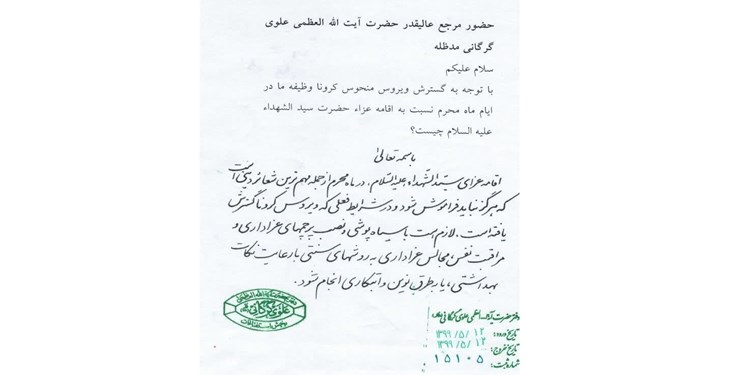 حضور مرجع عالیقدر حضرت آیت الله العظمی علوی
گرگانی مدظله
سلام علیکم
با توجه به گسترش ویروس منحوس کرونا وظیفه ما در
ایام ماه محرم نسبت به اقامه عزاء حضرت سید الشهداء
علیه السلام چیست؟
باسمه تعالیٰ
اقامه عزای سیّدالشّهداء علیه‌السّلام، در ماه محرم از جمله مهم ترین شعائر دینی است
که هرگز نباید فراموش شود و در شرایط فعلی که ویروس کرونا گسترش
یافته است. لازم است با سیاه پوشی و نصب پرچمهای عزاداری و
مراقبت نفس، مجالس عزاداری به روشهای سنتی با رعایت نکات
بهداشتی، یا به طرق نوین و ابتکاری انجام شود.
علوی گرگانی
دفتر حضرت آیت الله العظمی علوی گرگانی
تاریخ ورود: ۱۳۹۹/۵/۱۲
تاریخ خروج: ۱۳۹۹/۵/۱۲
شماره ثبت: ۱۵۱۰۵